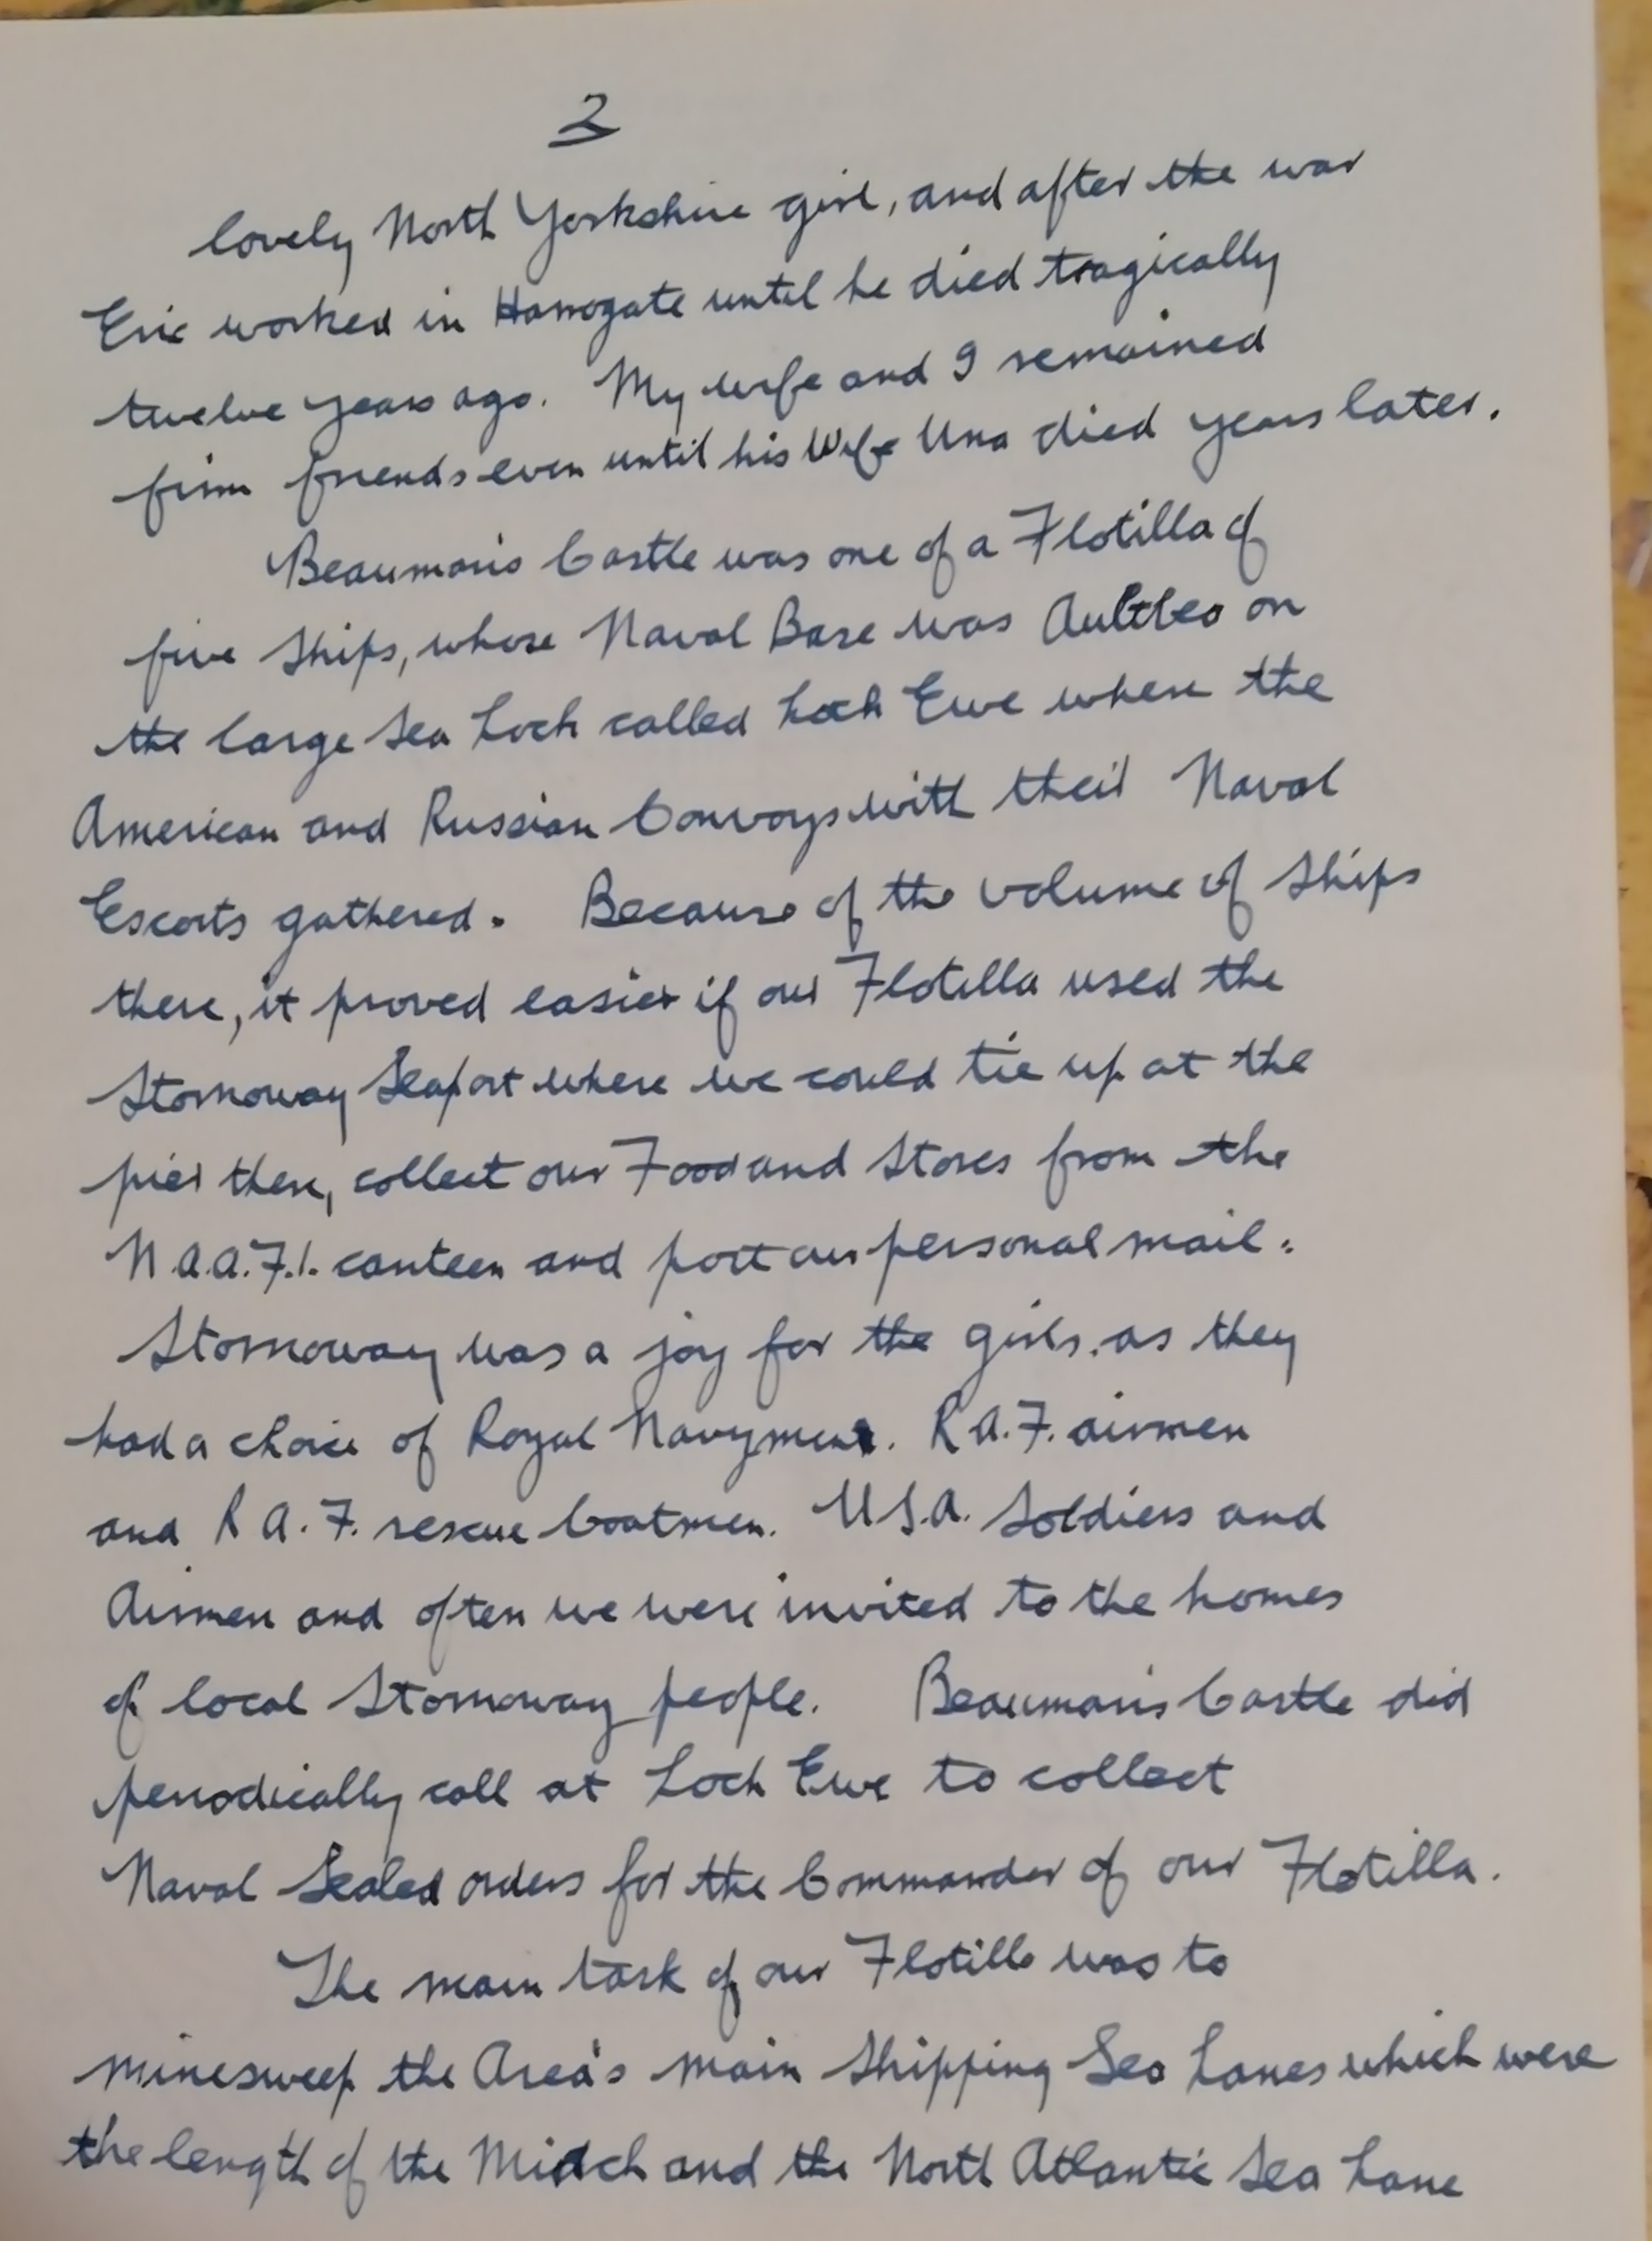 2
lovely North Yorkshire girl, and after the war
Eric worked in Harrogate until he died tragically
twelve years ago. My wife and I remained
firm friends even until his Wife Una died years later.
Beaumaris Castle was one of a Flotilla of
five Ships, whose Naval Base was Aultbea on
the large Sea Loch called Loch Ewe where the
American and Russian Convoys with their Naval
Escorts gathered. Because of the volume of Ships
there, it proved easier if our Flotilla used the
Stornoway Seaport where we could tie up at the
pier there, collect our Food and Stores from the
N.A.A.F.I. canteen and post our personal mail.
Stornoway was a joy for the girls. as they
had a choice of Royal Navymen. R.A.F. airmen
and R.A.F. rescue boatmen. U.S.A. Soldiers and
Airmen and often we were invited to the homes
of local Stornoway people. Beaumaris Castle did
periodically call at Loch Ewe to collect
Naval Sealed orders for the Commander of our Flotilla.
The main task of our Flotilla was to
minesweep the Area's main Shipping Sea Lanes which were
the length of the Minch and the North Atlantic Sea Lane